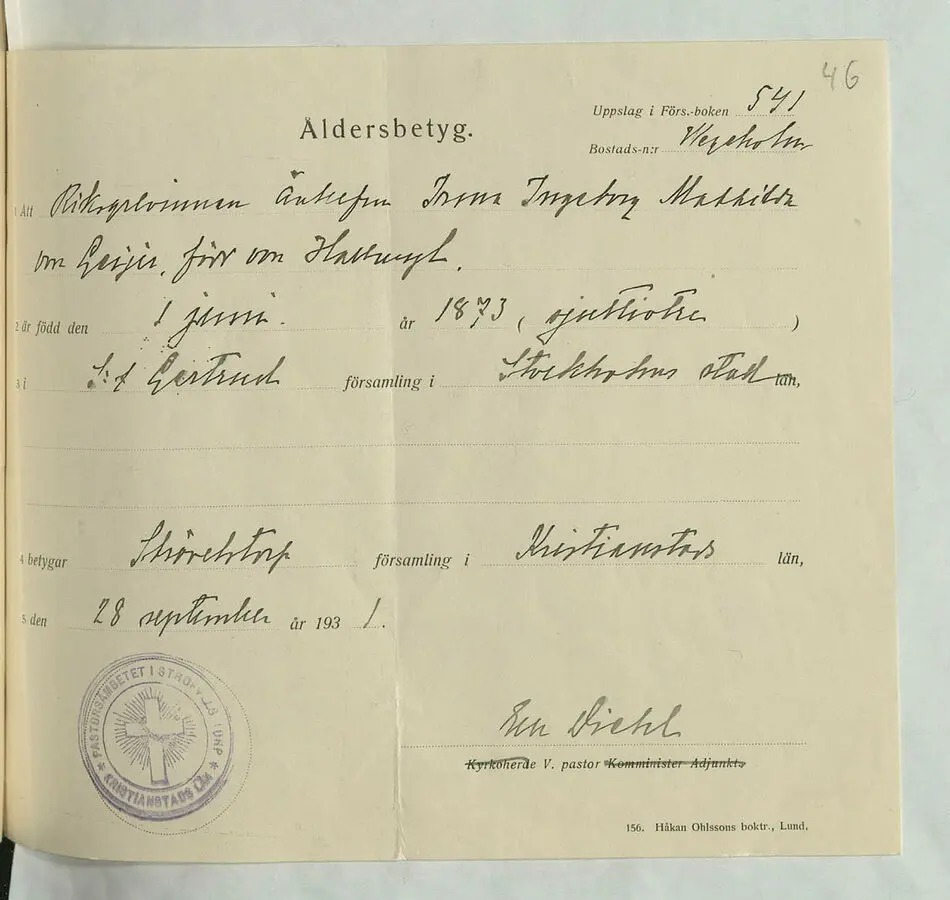 46
Uppslag i Förs.-boken 541
Åldersbetyg.
Bostads-n:r Wegeholm
1 Att Riksgrevinnan Änkefru Irma Ingeborg Mathilda
von Geijer, född von Hallwyl.
2 är född den 1 juni. år 1873 (sjuttiotre)
3 i S:t Gertrud församling i Stockholms stad län,
4 betygar Strövelstorp församling i Kristianstads län,
5 den 28 september år 1931.
PASTORSÄMBETET I STRÖVELSTORP
KRISTIANSTADS LÄN
Diehl
Kyrkoherde V. pastor Komminister Adjunkt.
156. Håkan Ohlssons boktr., Lund.